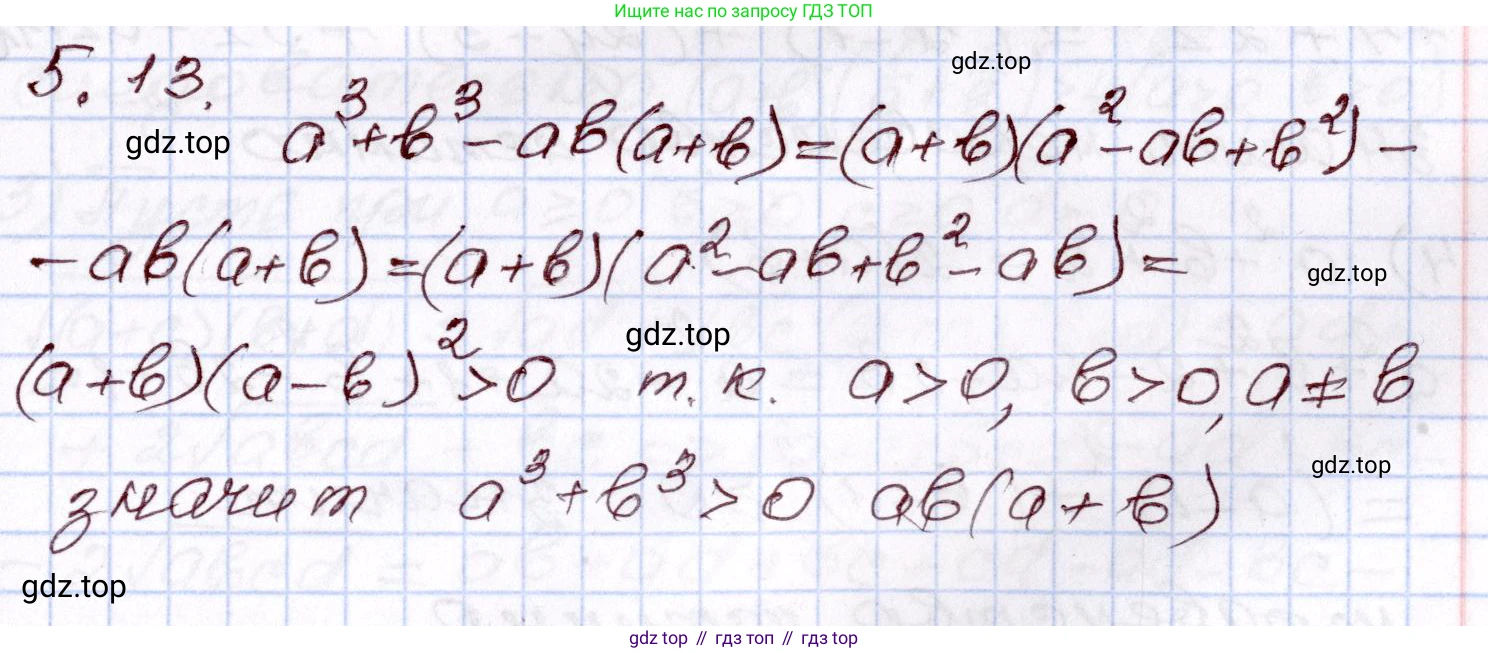 Ищите нас по запросу ГДЗ ТОП
5.13.
gdz.top
gdz.top a³+в³-aв(a+в)=(a+в)(a²-aв+в²)-
-aв(a+в)=(a+в)(a²-aв+в²-aв)=
gdz.top
gdz.top
(a+в)(a-в)²>0 т.к. a>0, в>0, a≠в
gdz.top
значит a³+в³>0 aв(a+в)
gdz.top
gdz top // гдз топ // gdz top